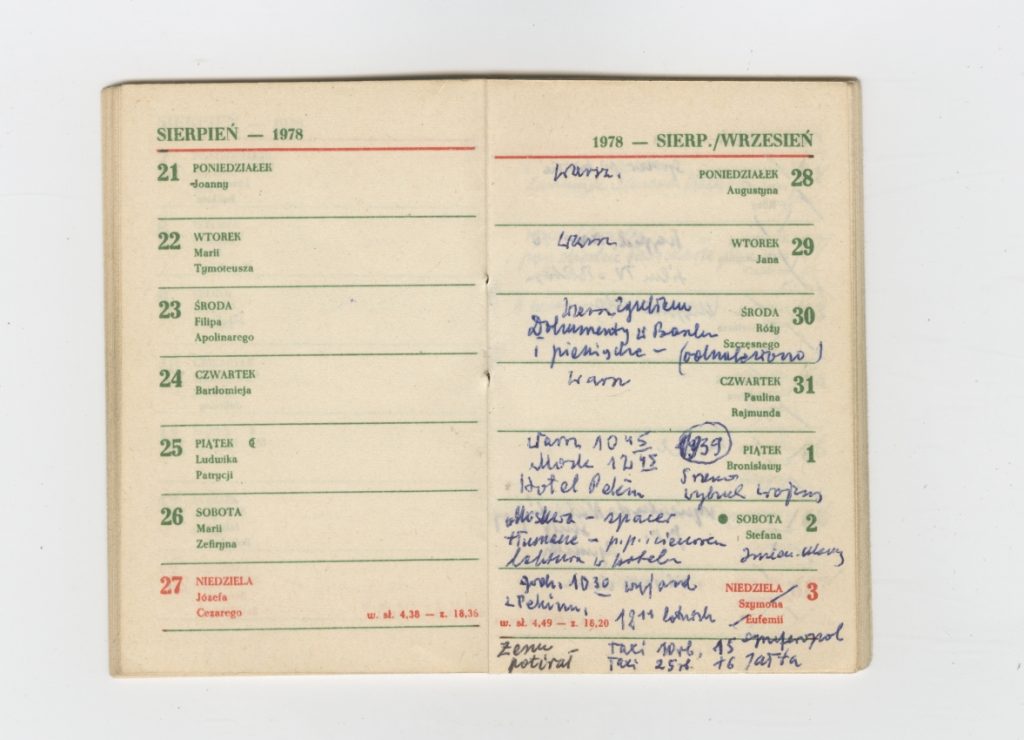 SIERPIEŃ — 1978
21 PONIEDZIAŁEK
Joanny
22 WTOREK
Marii
Tymoteusza
23 ŚRODA
Filipa
Apolinarego
24 CZWARTEK
Bartłomieja
25 PIĄTEK
Ludwika
Patrycji
26 SOBOTA
Marii
Zefiryna
27 NIEDZIELA
Józefa
Cezarego
w. sł. 4,38 — z. 18,36
1978 — SIERP./WRZESIEŃ
Warsz.
PONIEDZIAŁEK 28
Augustyna
Warsz
WTOREK 29
Jana
ŚRODA 30
Dokumenty w Banku
Róży
Szczęsnego
i pieniądze –
Warsz
CZWARTEK 31
Paulina
Rajmunda
Warsz 10 45
1939
PIĄTEK 1
Bronisławy
Mosk 12 45
Hotel Pekin
wybuch wojny
Moskwa – spacer
SOBOTA 2
Stefana
w hotelu
godz. 10 30 wyjazd
NIEDZIELA 3
Szymona
Eufemii
z Pekinu.
w. sł. 4,49 — z. 18,20
Symferopol
Taxi 10 rb.
Taxi 25 rb.
Jałta